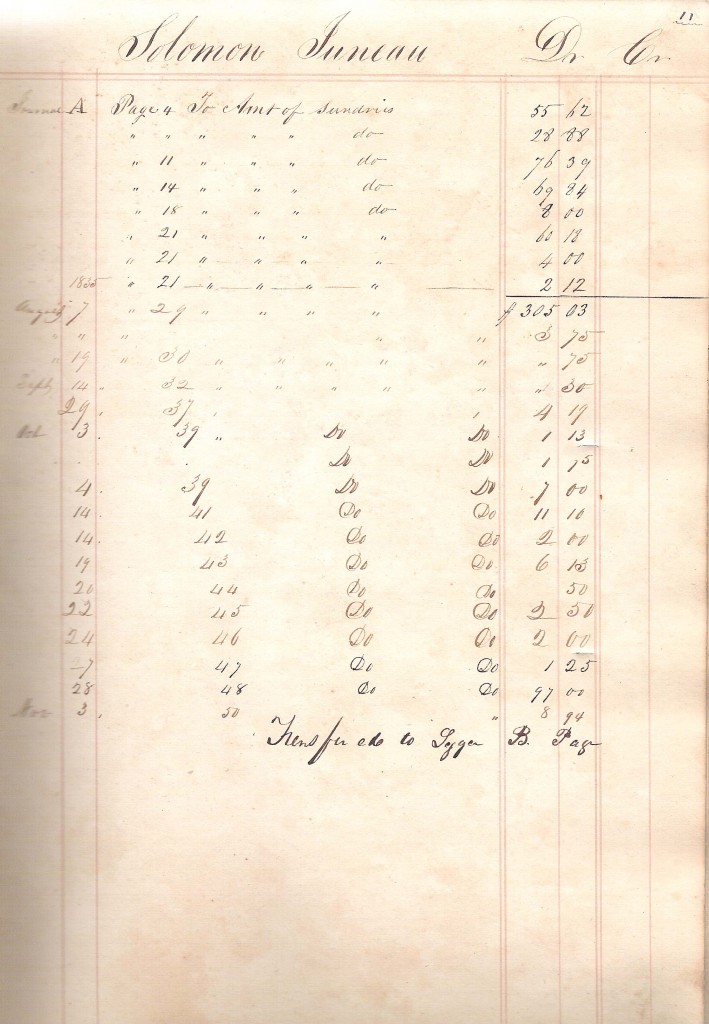 11
Solomon Juneau Dr Cr
Journal A Page 4 To Amt of Sundries 55 62
" " " " " do 28 88
" 11 " " " do 76 39
" 14 " " " do 69 84
" 18 " " " do 8 00
" 21 " " " " 60 18
" 21 " " " " 4 00
1835 " 21 " " " " 2 12
August 7 " 29 " " " " $ 305 03
" " " " " 3 75
" 19 " 30 " " " " " " 75
Septr 14 " 32 " " " " " " 30
29 37 " " 4 19
Oct 3 39 " Do Do 1 13
Do Do 1 75
4 39 Do Do 7 00
14 41 Do Do 11 10
14 42 Do Do 2 00
19 43 Do Do 6 13
20 44 Do Do 50
22 45 Do Do 2 50
24 46 Do Do 2 00
47 Do Do 1 25
28 48 Do Do 97 00
Nov 3 50 " 8 94
to B. Page